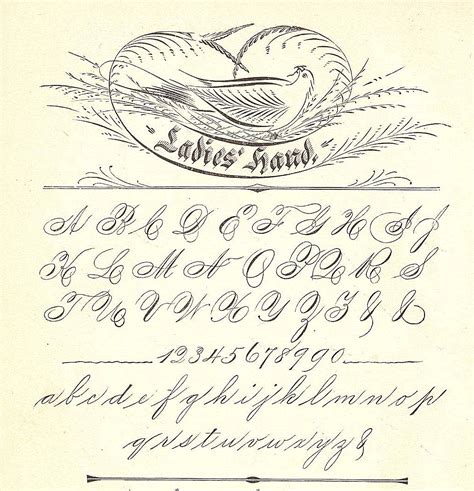 Ladies' Hand.
A B C D E F G H I J
K L M N O P Q R S
T U V W X Y Z & &
1 2 3 4 5 6 7 8 9 0
a b c d e f g h i j k l m n o p
q r s t u v w x y z &